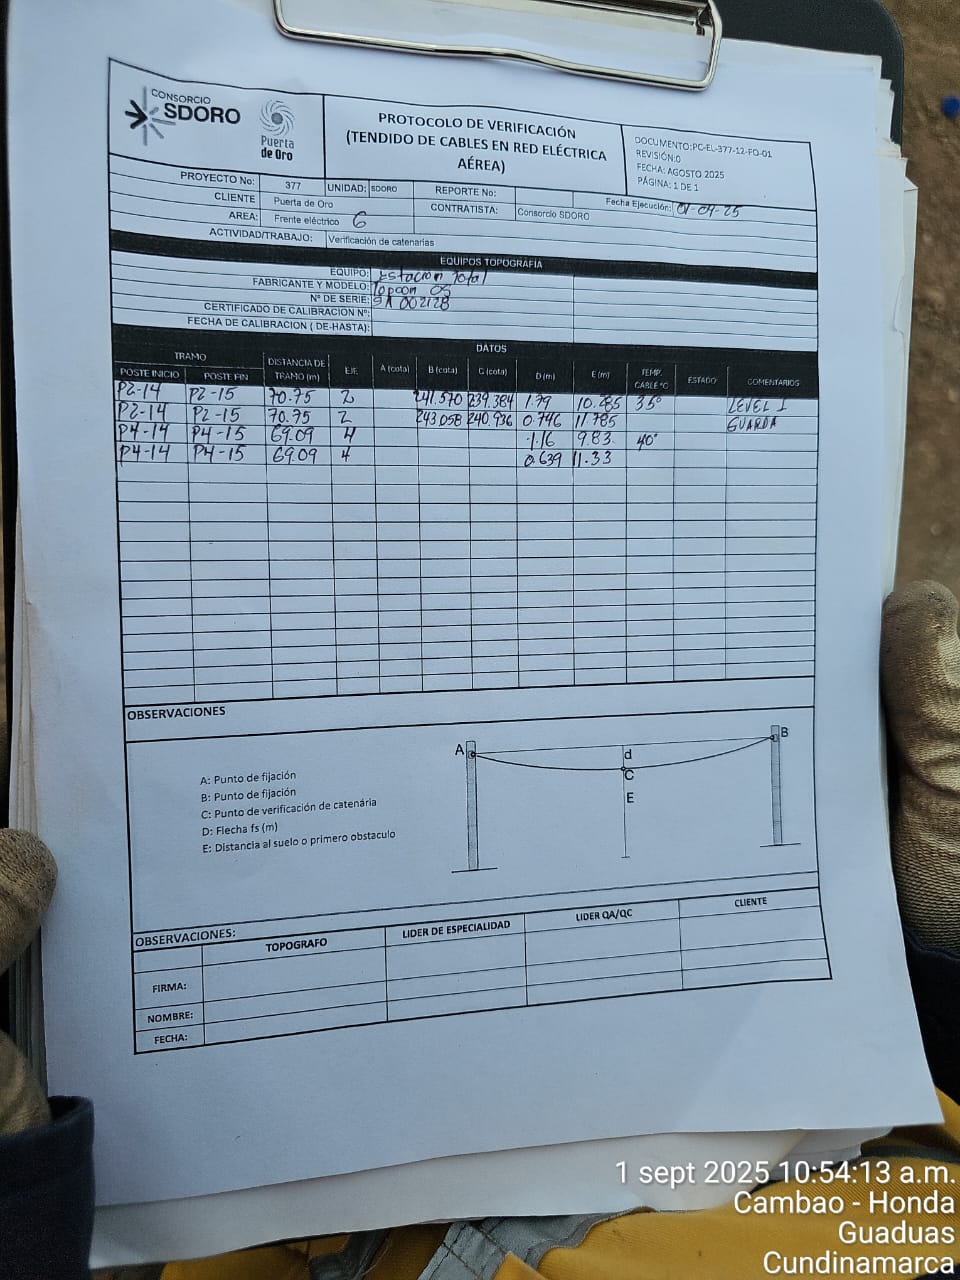 CONSORCIO
SDORO
Puerta
de Oro
PROTOCOLO DE VERIFICACIÓN
(TENDIDO DE CABLES EN RED ELÉCTRICA
AÉREA)
DOCUMENTO:PC-EL-377-12-FO-01
REVISIÓN:0
FECHA: AGOSTO 2025
PÁGINA: 1 DE 1
PROYECTO No: 377 UNIDAD: SDORO REPORTE No: Fecha Ejecución:
CLIENTE Puerta de Oro CONTRATISTA: Consorcio SDORO
AREA: Frente eléctrico 6
ACTIVIDAD/TRABAJO: Verificación de catenarias
EQUIPOS TOPOGRAFÍA
EQUIPO: Estacion Total
FABRICANTE Y MODELO: Topcon OS
N° DE SERIE: 002128
CERTIFICADO DE CALIBRACION N°:
FECHA DE CALIBRACION ( DE-HASTA):
DATOS
TRAMO DISTANCIA DE TRAMO (m) EJE A (cota) B (cota) C (cota) D (m) E (m) TEMP. CABLE °C ESTADO COMENTARIOS
POSTE INICIO POSTE FIN
P2-14 P2-15 70.75 2 241.570 239.384 1.79 10.285 35° LEVEL 1
P2-14 P2-15 70.75 2 243.058 240.936 0.746 11.785 GUARDA
P4-14 P4-15 69.09 4 1.16 9.83 40°
P4-14 P4-15 69.09 4 0.639 11.33
OBSERVACIONES
A: Punto de fijación
B: Punto de fijación
C: Punto de verificación de catenária
D: Flecha fs (m)
E: Distancia al suelo o primero obstaculo
A
B
d
C
E
OBSERVACIONES:
TOPOGRAFO LIDER DE ESPECIALIDAD LIDER QA/QC CLIENTE
FIRMA:
NOMBRE:
FECHA:
1 sept 2025 10:54:13 a.m.
Cambao - Honda
Guaduas
Cundinamarca